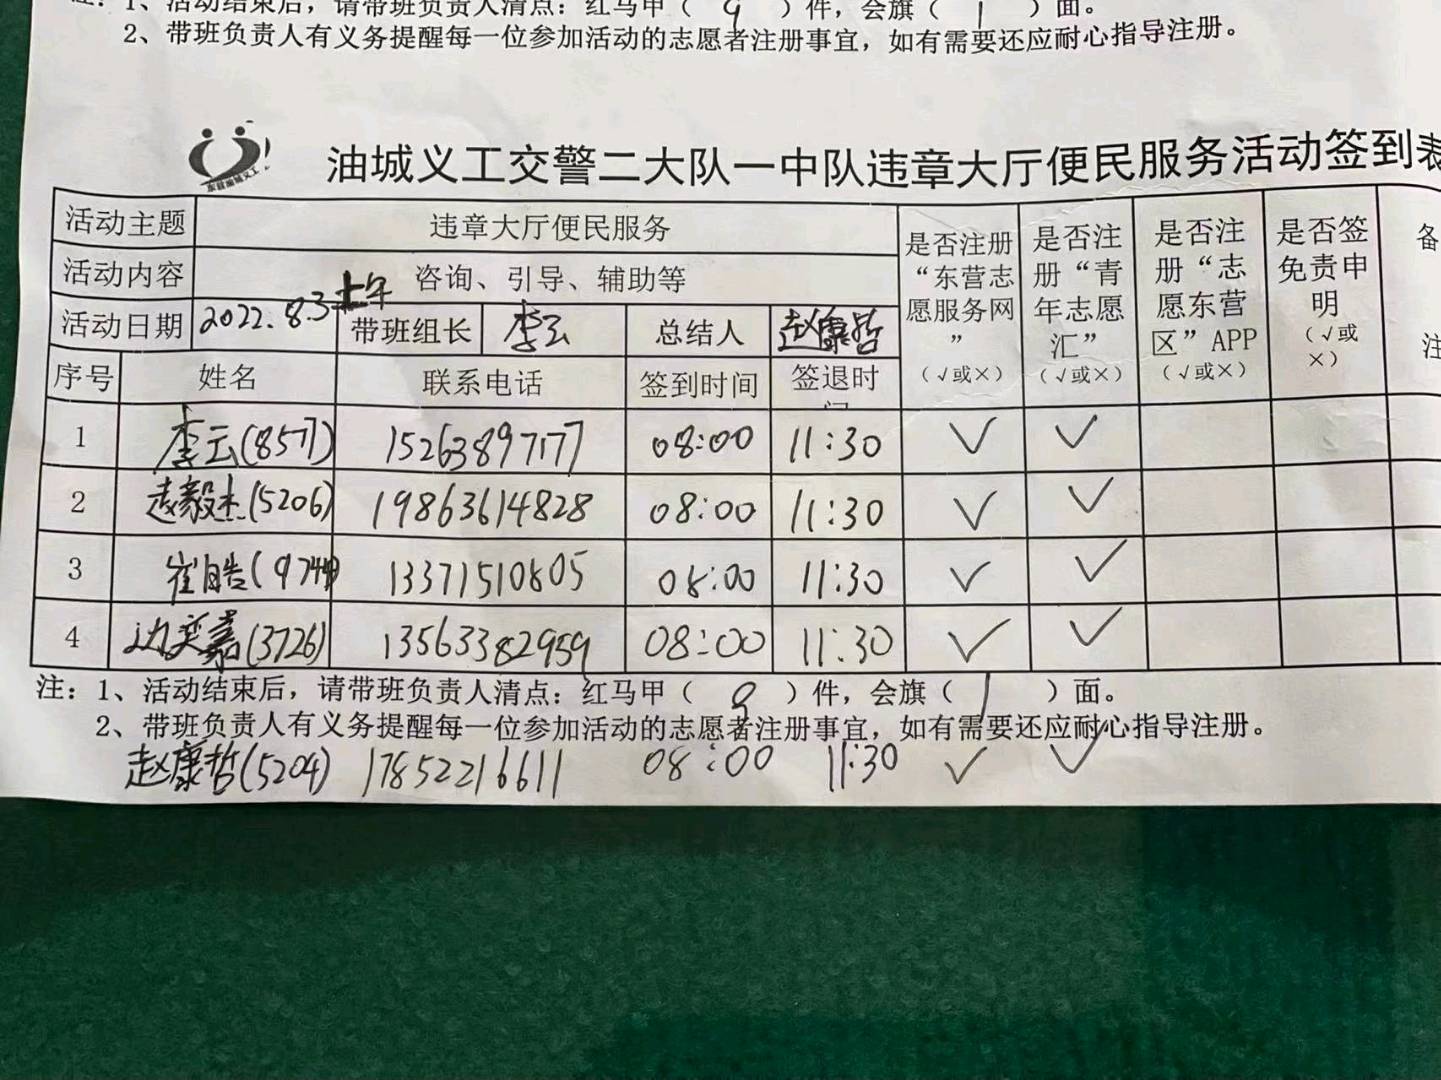 注：1、活动结束后，请带班负责人清点：红马甲（ 9 ）件，会旗（ 1 ）面。
2、带班负责人有义务提醒每一位参加活动的志愿者注册事宜，如有需要还应耐心指导注册。
油城义工交警二大队一中队违章大厅便民服务活动签到表
活动主题 违章大厅便民服务 是否注册“东营志愿服务网”（√或×） 是否注册“青年志愿汇”（√或×） 是否注册“志愿东营区”APP（√或×） 是否签免责申明（√或×） 备注
活动内容 咨询、引导、辅助等
活动日期 2022.8.3上午 带班组长 李云 总结人 赵康哲
序号 姓名 联系电话 签到时间 签退时间
1 李云(8577) 15263897177 08:00 11:30 √ √
2 赵毅杰(5206) 19863614828 08:00 11:30 √ √
3 崔皓(9744) 13371510805 08:00 11:30 √ √
4 边奕嘉(3726) 13563382959 08:00 11:30 √ √
注：1、活动结束后，请带班负责人清点：红马甲（ 9 ）件，会旗（ 1 ）面。
2、带班负责人有义务提醒每一位参加活动的志愿者注册事宜，如有需要还应耐心指导注册。
赵康哲(5204) 17852216611 08:00 11:30 √ √